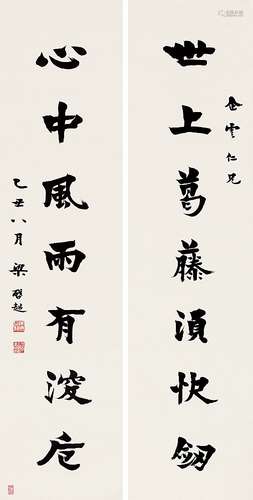 企雲仁兄
世上葛藤湏快劒
心中風雨有深卮
乙丑八月 梁啓超